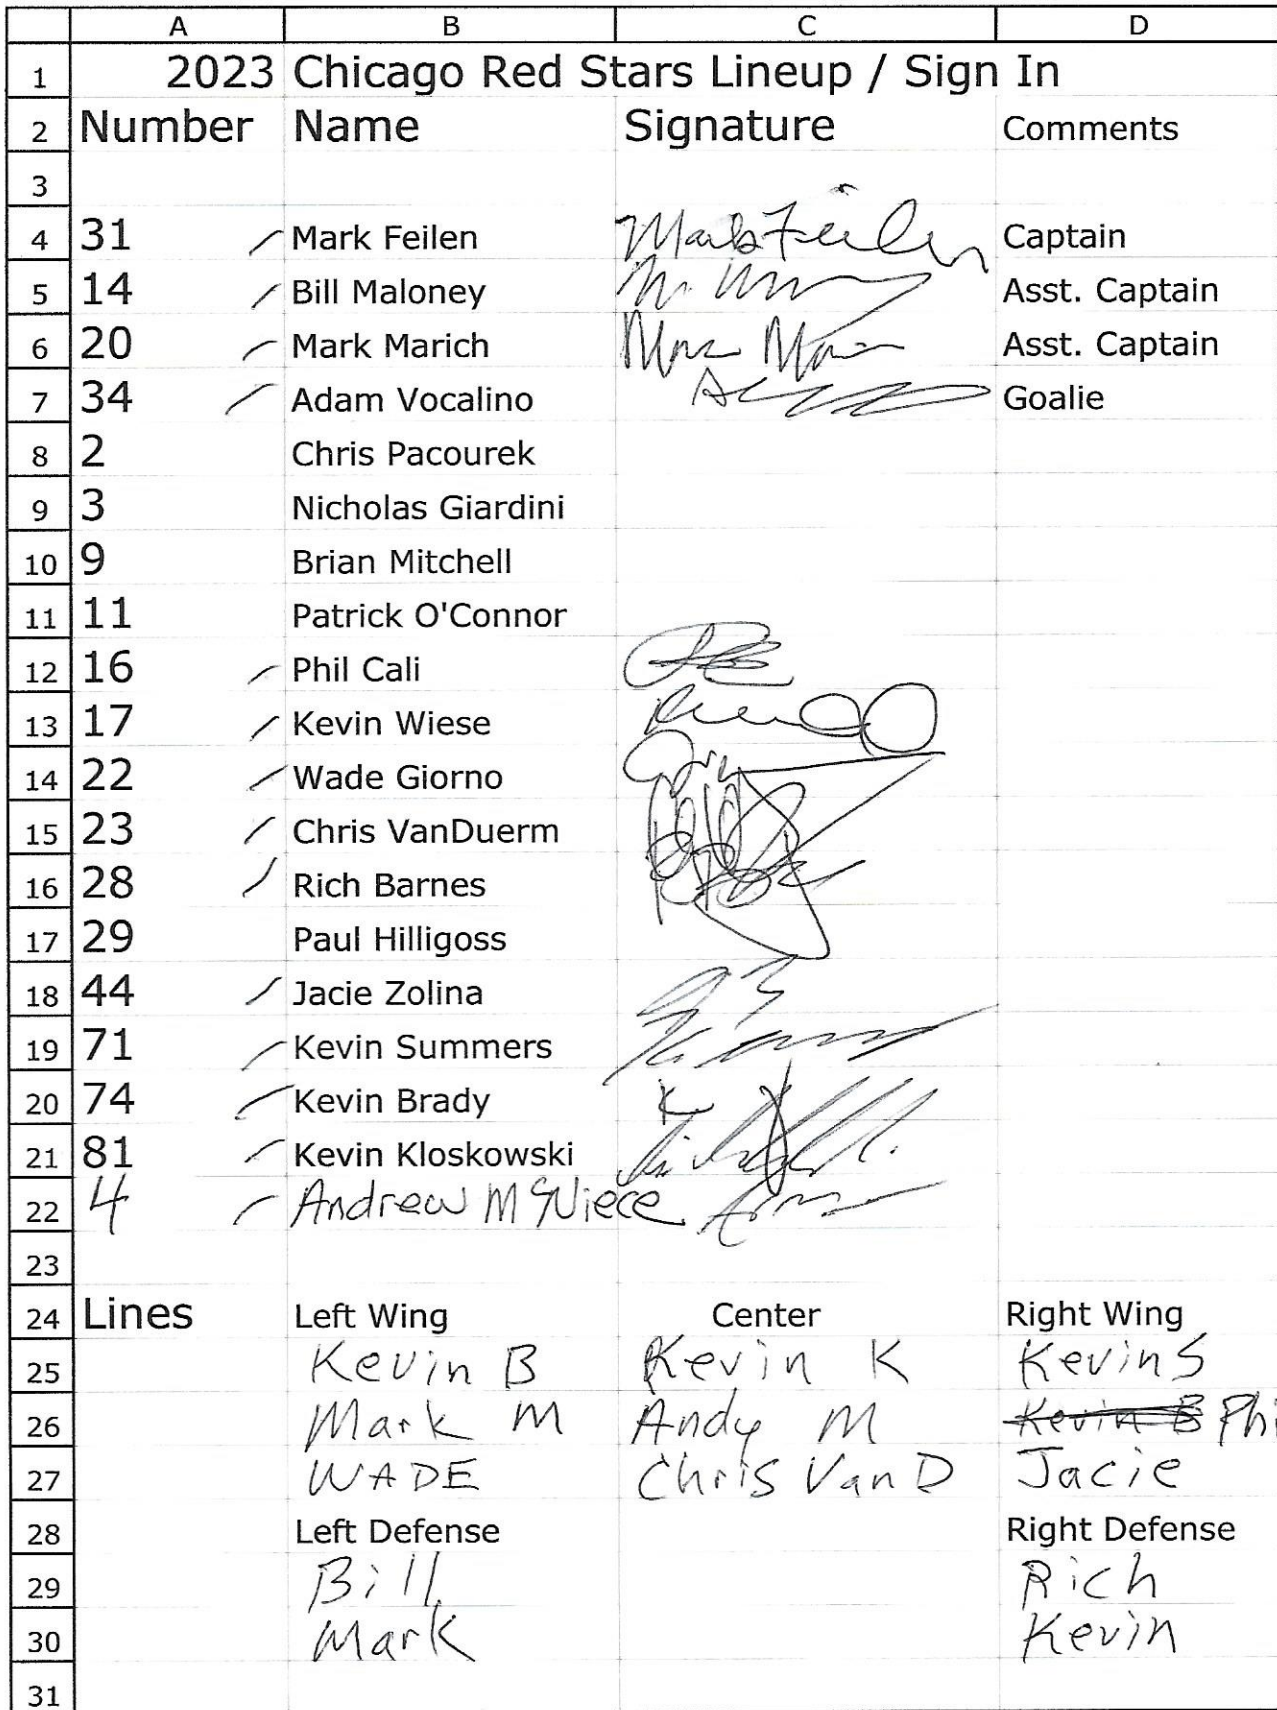 A B C D
1 2023 Chicago Red Stars Lineup / Sign In
2 Number Name Signature Comments
3
4 31 Mark Feilen Mark Feilen Captain
5 14 Bill Maloney Asst. Captain
6 20 Mark Marich Asst. Captain
7 34 Adam Vocalino Goalie
8 2 Chris Pacourek
9 3 Nicholas Giardini
10 9 Brian Mitchell
11 11 Patrick O'Connor
12 16 Phil Cali
13 17 Kevin Wiese
14 22 Wade Giorno
15 23 Chris VanDuerm
16 28 Rich Barnes
17 29 Paul Hilligoss
18 44 Jacie Zolina
19 71 Kevin Summers
20 74 Kevin Brady
21 81 Kevin Kloskowski
22 4 Andrew McNiece
23
24 Lines Left Wing Center Right Wing
25 Kevin B Kevin K Kevin S
26 Mark M Andy M Kevin B Phi
27 WADE Chris Van D Jacie
28 Left Defense Right Defense
29 Bill Rich
30 Mark Kevin
31